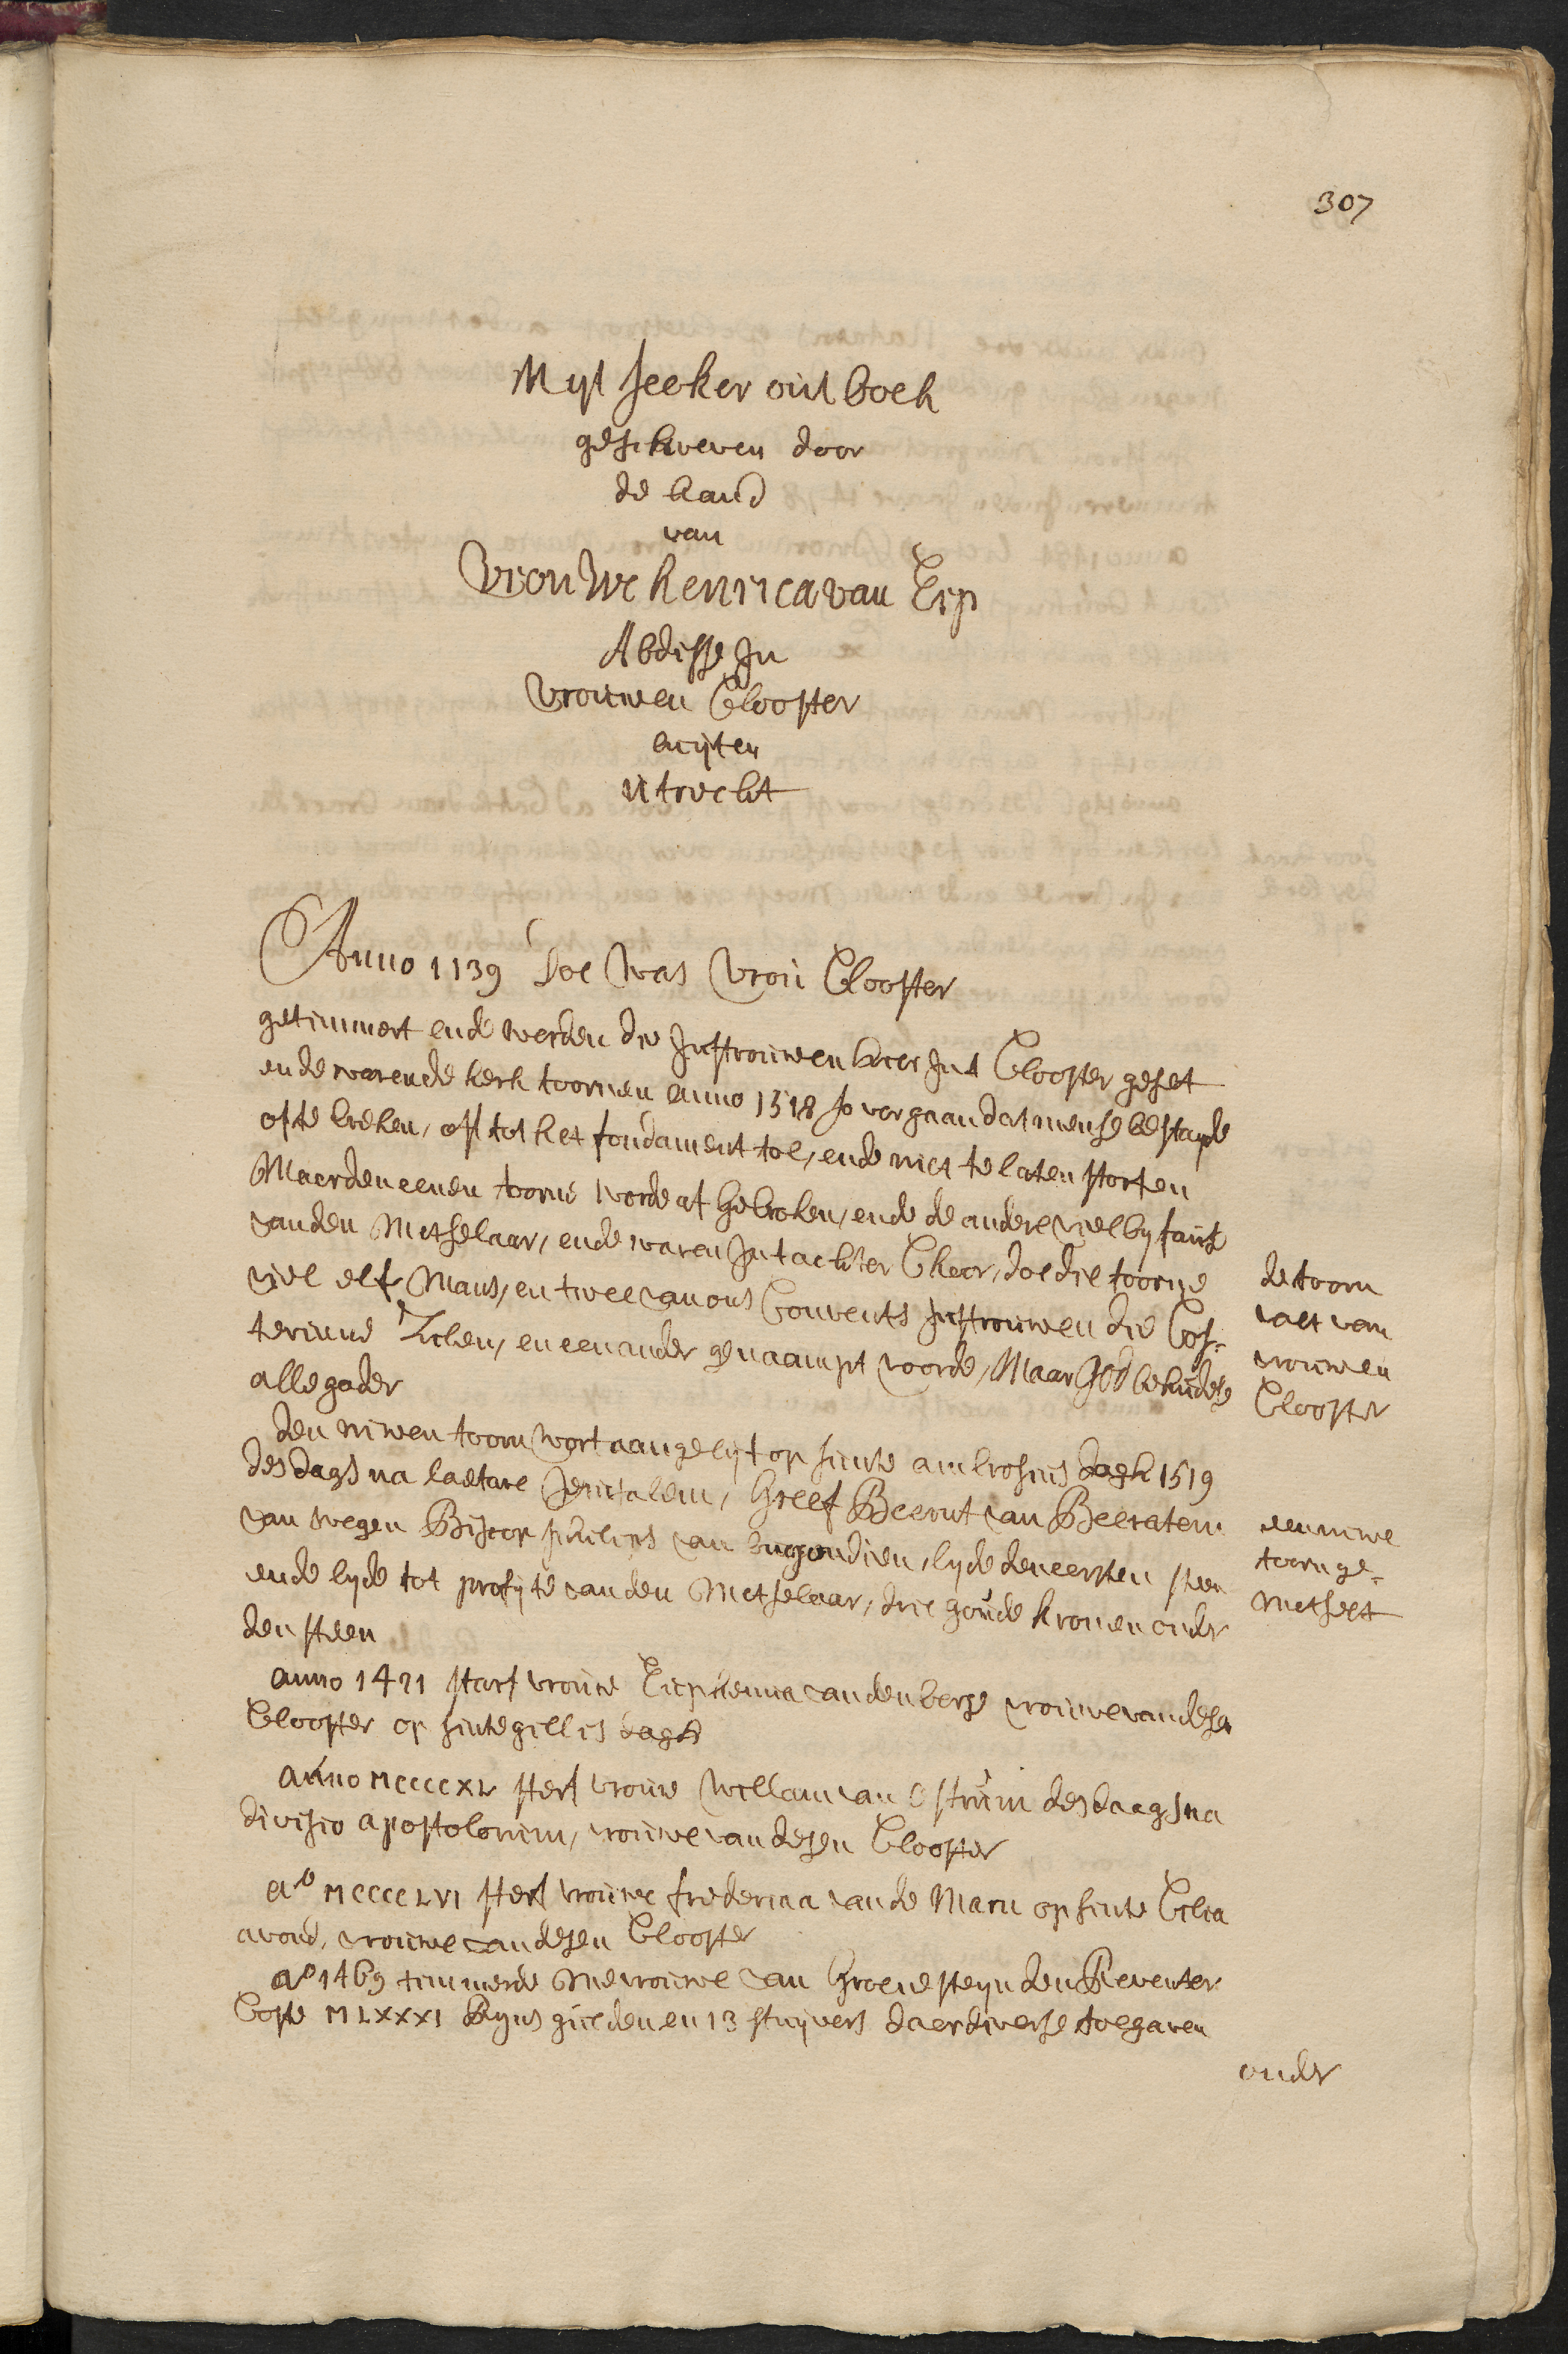 307
Uyt seeker out boek
geschreven door
de hand
van
Vrouwe henrica van Erp
Abdisse In
Vrouwen Clooster
buijten
Utrecht
Anno 1139 doe was Vrou Clooster
getimmert ende werden die Juffrouwen hier Int Clooster geset
ende waren de kerk toornen anno 1518 so vergaan dat men se bestayde
of te breken, oft tot het fondament toe, ende niet te laten storten
Maer den eenen toorne worde af gebroken, ende de andere viel by faute
van den Metselaar, ende waren Int achter Choor, doe die toorne
viel elf Mans, en twee van ons Convents Juffrouwen die Cos-
terinne Zulen, en een ander genaampt voorde, Maar God behudese
allegader
de toorn
valt van
vrouwen
Clooster
den niwen toorn wort aangeleyt op sinte ambrosius dagh 1519
des dags na laetare Jerusalem, Greef Beernt van Beeratem
van wegen Biscop philips van burgondien, lyde den eersten steen
ende lyde tot profyte van den Metselaar, drie goude kronen onder
den steen
een niwe
toorn ge-
metselt
anno 1421 starf vrouwe Euphemia van den berge vrouwe van desen
Clooster op sinte gillis dagh
anno MCCCCXL sterf vrouwe Willam van Ostrum des daags na
divisio apostolorum, vrouwe van desen Clooster
a° MCCCCLVI sterf vrouwe frederica van de Maru op sinte Cilia
avond, vrouwe van desen Clooster
a° 1469 timmerde Mevrouwe van Groenesteyn den Reventer
Coste MLXXXI Ryns gulden en 13 stuyvers daer diverse toe gaven
onder